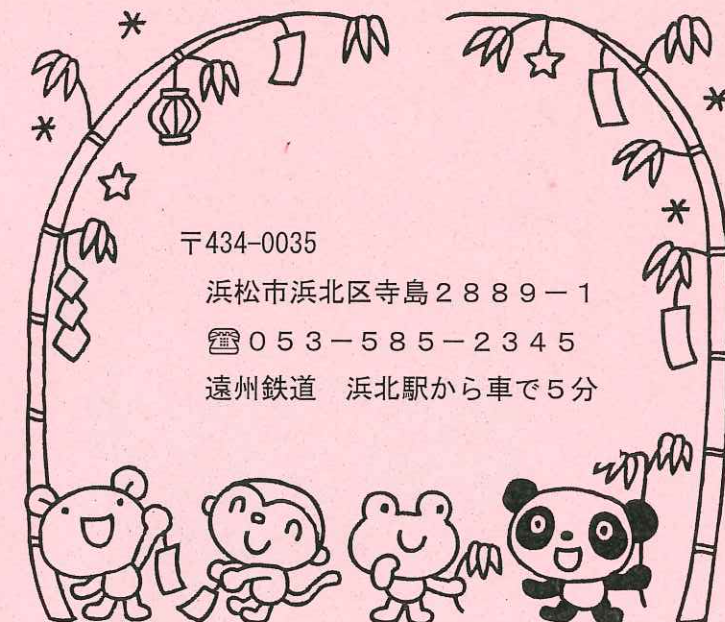 〒434-0035
浜松市浜北区寺島２８８９－１
☎０５３－５８５－２３４５
遠州鉄道　浜北駅から車で５分